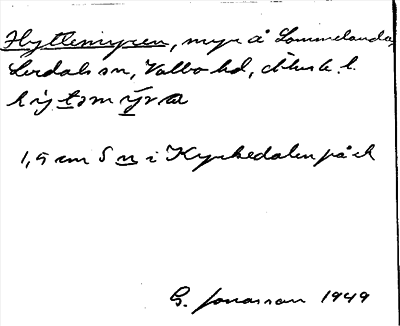 Hyttemyren, myr å Lommelanda,
Lerdals sn, Valbo hd, Älvsb. l.
1,5 cm S n i Kyrkedalen på ek
G. Jonasson 1949